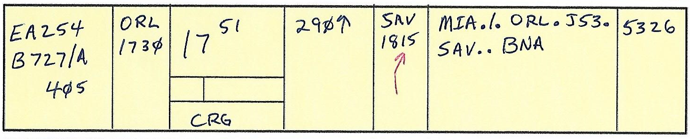 EA254
B727/A
405
ORL
1730
17 51
CRG
290↑
SAV
1815
MIA./. ORL. J53.
SAV.. BNA
5326